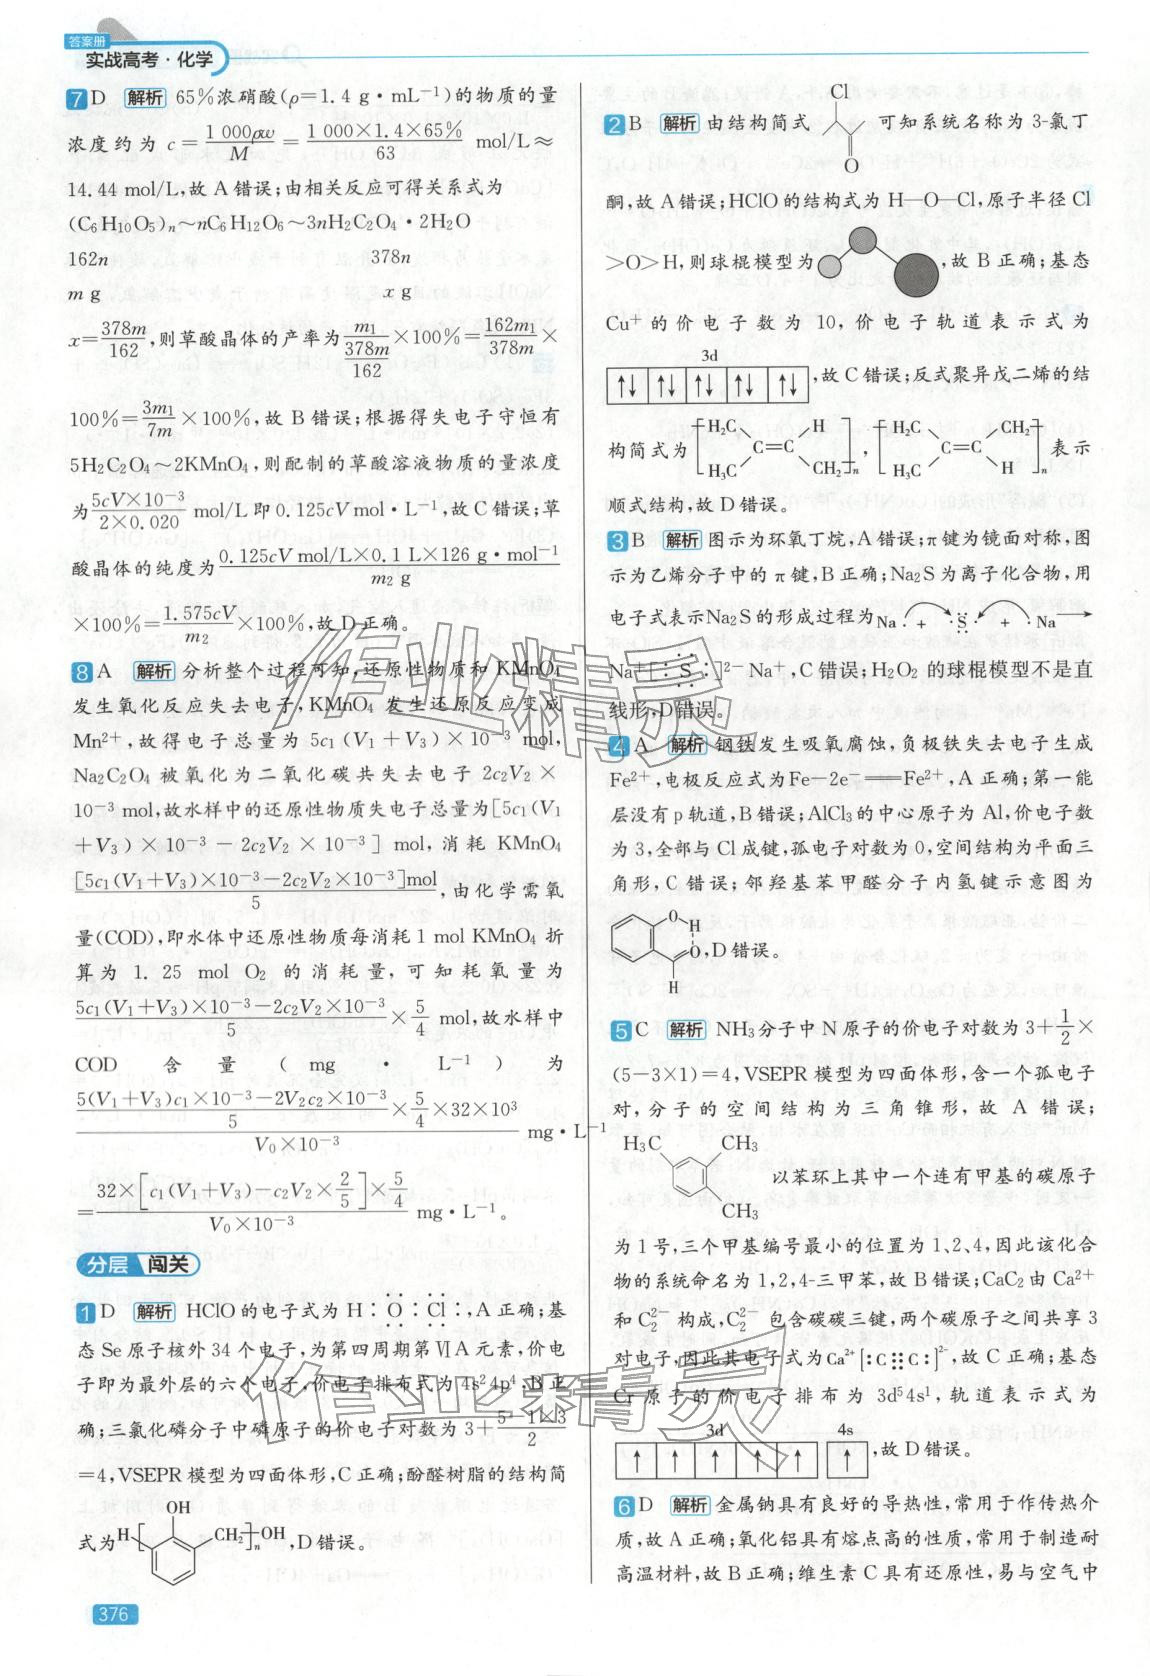 答案册
实战高考·化学
7 D 解析 65%浓硝酸(ρ=1.4 g·mL⁻¹)的物质的量
浓度约为 c=1 000ρw/M=1 000×1.4×65%/63 mol/L≈
14.44 mol/L,故 A 错误;由相关反应可得关系式为
(C₆H₁₀O₅)ₙ～nC₆H₁₂O₆～3nH₂C₂O₄·2H₂O
162n 378n
m g x g
x=378m/162,则草酸晶体的产率为 m₁/(378m/162)×100%=162m₁/378m×
100%=3m₁/7m×100%,故 B 错误;根据得失电子守恒有
5H₂C₂O₄～2KMnO₄,则配制的草酸溶液物质的量浓度
为 5cV×10⁻³/2×0.020 mol/L 即 0.125cV mol·L⁻¹,故 C 错误;草
酸晶体的纯度为 0.125cV mol/L×0.1 L×126 g·mol⁻¹/m₂ g
×100%=1.575cV/m₂×100%,故 D 正确。
8 A 解析 分析整个过程可知,还原性物质和 KMnO₄
发生氧化反应失去电子,KMnO₄ 发生还原反应变成
Mn²⁺,故得电子总量为 5c₁(V₁+V₃)×10⁻³ mol,
Na₂C₂O₄ 被氧化为二氧化碳共失去电子 2c₂V₂×
10⁻³ mol,故水样中的还原性物质失电子总量为[5c₁(V₁
+V₃)×10⁻³-2c₂V₂×10⁻³] mol,消耗 KMnO₄
[5c₁(V₁+V₃)×10⁻³-2c₂V₂×10⁻³]mol/5,由化学需氧
量(COD),即水体中还原性物质每消耗 1 mol KMnO₄ 折
算为 1.25 mol O₂ 的消耗量,可知耗氧量为
5c₁(V₁+V₃)×10⁻³-2c₂V₂×10⁻³/5×5/4 mol,故水样中
COD 含量(mg·L⁻¹)为
5(V₁+V₃)c₁×10⁻³-2V₂c₂×10⁻³/5×5/4×32×10³/V₀×10⁻³ mg·L⁻¹
=32×[c₁(V₁+V₃)-c₂V₂×2/5]×5/4/V₀×10⁻³ mg·L⁻¹。
分层 闯关
1 D 解析 HClO的电子式为 H:O:Cl:,A 正确;基
态 Se 原子核外 34 个电子,为第四周期第ⅥA 元素,价电
子即为最外层的六个电子,价电子排布式为 4s²4p⁴,B 正
确;三氯化磷分子中磷原子的价电子对数为 3+5-1×3/2
=4,VSEPR 模型为四面体形,C 正确;酚醛树脂的结构简
OH
式为 H[ CH₂]ₙOH,D 错误。
376
Cl
2 B 解析 由结构简式 可知系统名称为 3-氯丁
O
酮,故 A 错误;HClO 的结构式为 H—O—Cl,原子半径 Cl
>O>H,则球棍模型为,故 B 正确;基态
Cu⁺ 的价电子数为 10,价电子轨道表示式为
3d
↑↓ ↑↓ ↑↓ ↑↓ ↑↓,故 C 错误;反式聚异戊二烯的结
构简式为 [H₂C H C=C H₃C CH₂]ₙ,[H₂C CH₂ C=C H₃C H]ₙ 表示
顺式结构,故 D 错误。
3 B 解析 图示为环氧丁烷,A 错误;π 键为镜面对称,图
示为乙烯分子中的 π 键,B 正确;Na₂S 为离子化合物,用
电子式表示Na₂S的形成过程为 Na·+·S·+·Na→
Na⁺[:S:]²⁻Na⁺,C 错误;H₂O₂ 的球棍模型不是直
线形,D 错误。
4 A 解析 钢铁发生吸氧腐蚀,负极铁失去电子生成
Fe²⁺,电极反应式为 Fe-2e⁻══Fe²⁺,A 正确;第一能
层没有 p 轨道,B 错误;AlCl₃ 的中心原子为 Al,价电子数
为 3,全部与 Cl 成键,孤电子对数为 0,空间结构为平面三
角形,C 错误;邻羟基苯甲醛分子内氢键示意图为
O H
O,D 错误。
H
5 C 解析 NH₃ 分子中 N 原子的价电子对数为 3+1/2×
(5-3×1)=4,VSEPR 模型为四面体形,含一个孤电子
对,分子的空间结构为三角锥形,故 A 错误;
H₃C CH₃
以苯环上其中一个连有甲基的碳原子
CH₃
为 1 号,三个甲基编号最小的位置为 1、2、4,因此该化合
物的系统命名为 1,2,4-三甲苯,故 B 错误;CaC₂ 由 Ca²⁺
和 C₂²⁻ 构成,C₂²⁻ 包含碳碳三键,两个碳原子之间共享 3
对电子,因此其电子式为Ca²⁺[:C⫶⫶C:]²⁻,故 C 正确;基态
Cr 原子的价电子排布为 3d⁵4s¹,轨道表示式为
3d 4s
↑ ↑ ↑ ↑ ↑ ↑,故 D 错误。
6 D 解析 金属钠具有良好的导热性,常用于作传热介
质,故 A 正确;氧化铝具有熔点高的性质,常用于制造耐
高温材料,故 B 正确;维生素 C 具有还原性,易与空气中
作业精灵
作业精灵